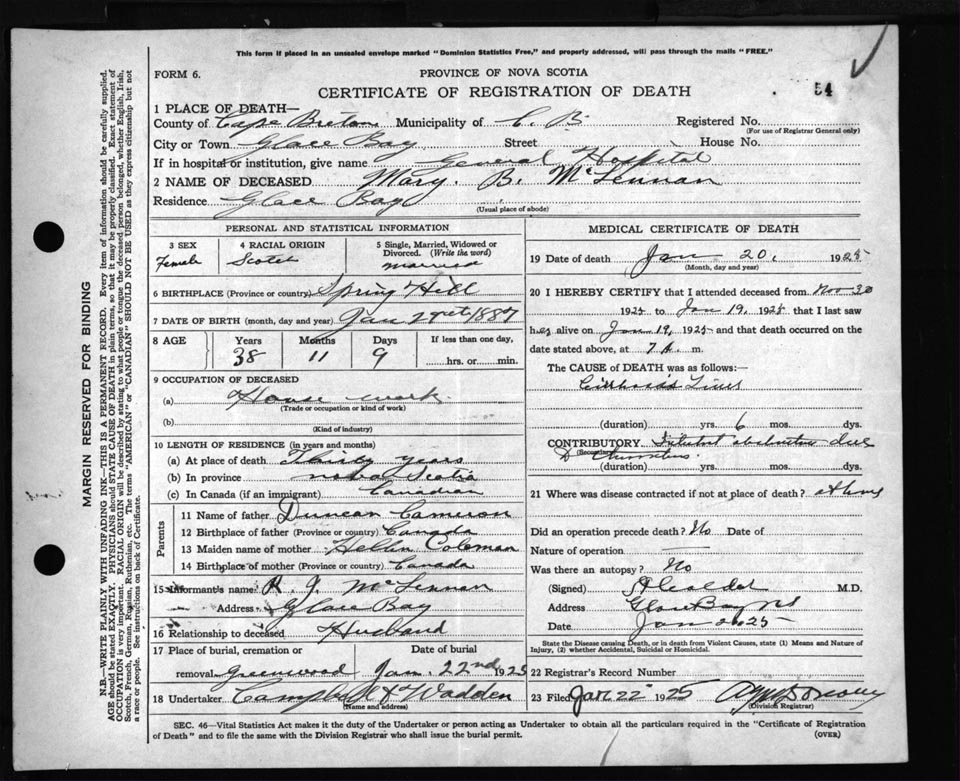 This form if placed in an unsealed envelope marked "Dominion Statistics Free," and properly addressed, will pass through the mails "FREE."
FORM 6.
PROVINCE OF NOVA SCOTIA
54
CERTIFICATE OF REGISTRATION OF DEATH
1 PLACE OF DEATH—
County of Cape Breton Municipality of C. B. Registered No.
(For use of Registrar General only)
City or Town Glace Bay Street House No.
If in hospital or institution, give name General Hospital
2 NAME OF DECEASED Mary. B. McLennan
Residence Glace Bay
(Usual place of abode)
PERSONAL AND STATISTICAL INFORMATION
3 SEX Female
4 RACIAL ORIGIN Scotch
5 Single, Married, Widowed or Divorced. (Write the word) Married
6 BIRTHPLACE (Province or country) Spring Hill
7 DATE OF BIRTH (month, day and year) Jan 1887
8 AGE Years Months Days If less than one day,
38 11 9 hrs. or min.
9 OCCUPATION OF DECEASED
(a) House work
(Trade or occupation or kind of work)
(b)
(Kind of industry)
10 LENGTH OF RESIDENCE (in years and months)
(a) At place of death Thirty years
(b) In province Nova Scotia
(c) In Canada (if an immigrant) Canadian
Parents
11 Name of father Duncan Cameron
12 Birthplace of father (Province or country) Canada
13 Maiden name of mother Hellen Coleman
14 Birthplace of mother (Province or country) Canada
15 Informant's name J. McLennan
Address Glace Bay
16 Relationship to deceased Husband
17 Place of burial, cremation or Date of burial
removal Greenwood Jan. 22nd 1925
18 Undertaker Campbell & Wadden
(Name and address)
MEDICAL CERTIFICATE OF DEATH
19 Date of death Jan 20, 1925
(Month, day and year)
20 I HEREBY CERTIFY that I attended deceased from Nov 30
192 to Jan 19, 1925 that I last saw
her alive on Jan 19, 1925 and that death occurred on
date stated above, at 7 A. m.
The CAUSE of DEATH was as follows:
Cirrhosis Liver
(duration) yrs. 6 mos. dys.
CONTRIBUTORY
(Secondary)
(duration) yrs. mos. dys.
21 Where was disease contracted if not at place of death? at home
Did an operation precede death? No Date of
Nature of operation
Was there an autopsy? No
(Signed) M.D.
Address Glace Bay NS
Date Jan
State the Disease causing Death, or in death from Violent Causes, state (1) Means and Nature of
Injury, (2) whether Accidental, Suicidal or Homicidal.
22 Registrar's Record Number
23 Filed Jan. 22 1925
(Division Registrar)
SEC. 46—Vital Statistics Act makes it the duty of the Undertaker or person acting as Undertaker to obtain all the particulars required in the "Certificate of Registration
of Death" and to file the same with the Division Registrar who shall issue the burial permit. (OVER)
MARGIN RESERVED FOR BINDING
N.B.—WRITE PLAINLY WITH UNFADING INK—THIS IS A PERMANENT RECORD. Every item of information should be carefully supplied.
AGE should be stated EXACTLY. PHYSICIANS should STATE CAUSE OF DEATH in plain terms, so that it may be properly classified. Exact statement of
OCCUPATION is very important. RACIAL ORIGIN will be described by stating to what people or tongue the deceased person belonged, whether English, Irish,
Scotch, French, German, Russian, Ruthenian, etc. The terms "AMERICAN" or "CANADIAN" SHOULD NOT BE USED as they express citizenship but not
a race or people. See instructions on back of Certificate.